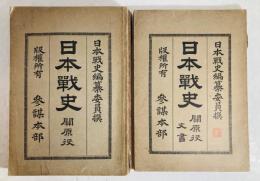 日本戰史編纂委員撰
日本戰史 關原役
版權所有 參謀本部
日本戰史編纂委員撰
日本戰史 關原役 文書
版權所有 參謀本部